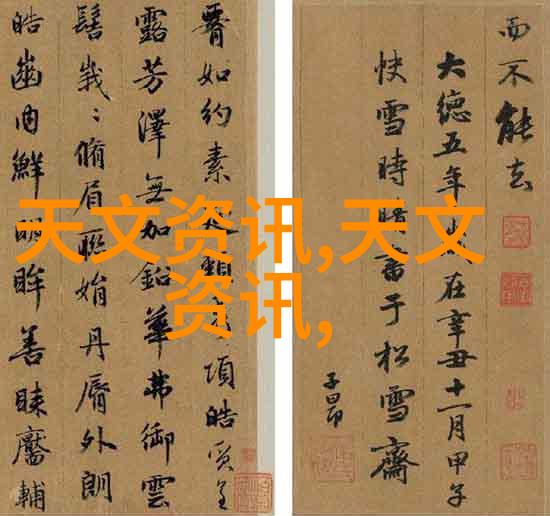 如約素延頸秀項皓質呈
露芳澤無加鉛華弗御雲
髻峩〻脩眉聮娟丹脣外朗
皓齒内鮮明眸善睞靨輔
而不能去
大德五年歲在辛丑十一月甲子
快雪時晴書于松雪齋
子昂
天文资讯,天文
资讯,